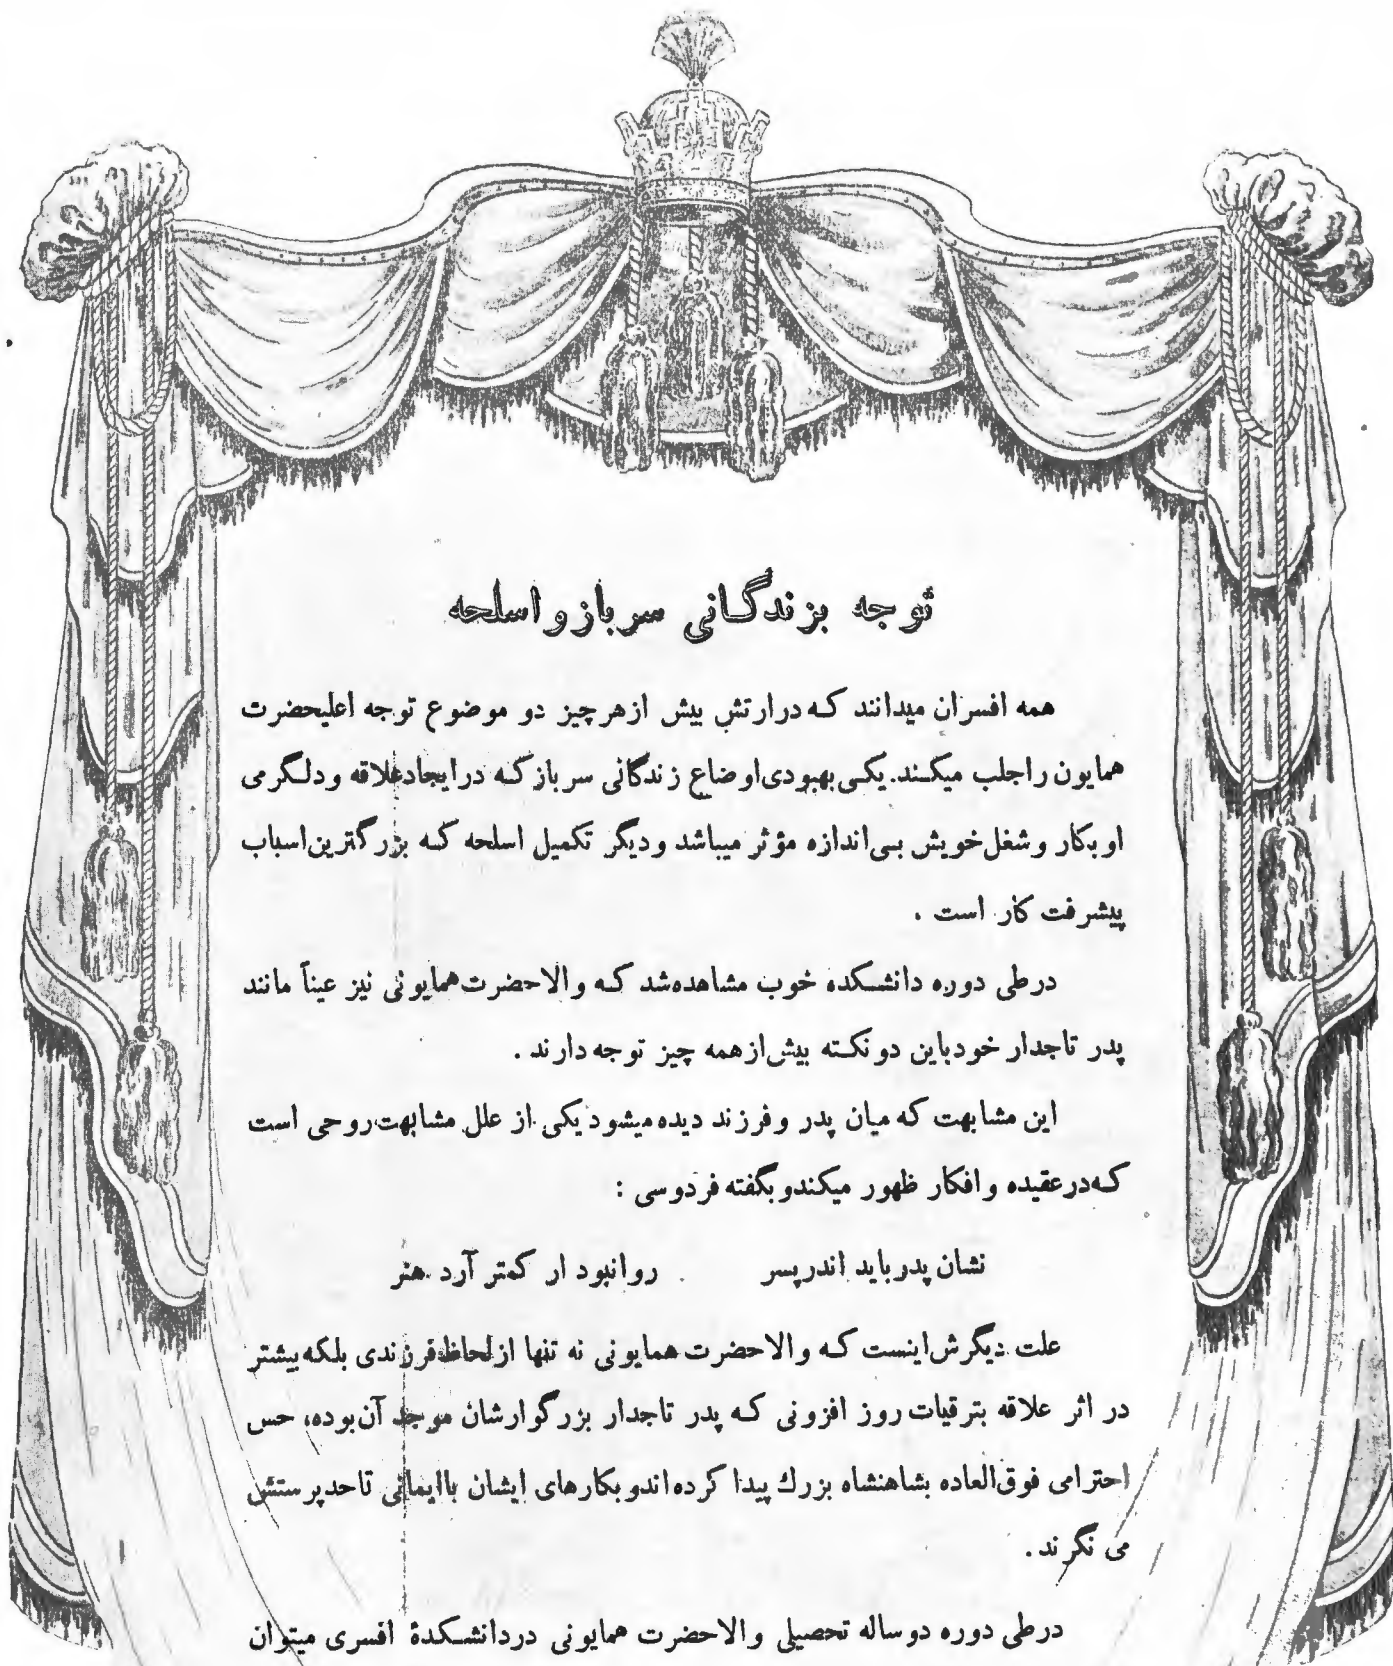 توجه بزندگانی سرباز و اسلحه
همه افسران میدانند که در ارتش بیش از هر چیز دو موضوع توجه اعلیحضرت
همایون را جلب میکند. یکی بهبودی اوضاع زندگانی سرباز که در ایجاد علاقه و دلگرمی
او بکار و شغل خویش بی‌اندازه مؤثر میباشد و دیگر تکمیل اسلحه که بزرگترین اسباب
پیشرفت کار است .
در طی دوره دانشکده خوب مشاهده شد که والاحضرت همایونی نیز عیناً مانند
پدر تاجدار خود باین دو نکته بیش از همه چیز توجه دارند .
این مشابهت که میان پدر و فرزند دیده میشود یکی از علل مشابهت روحی است
که در عقیده و افکار ظهور میکند و بگفته فردوسی :
نشان پدر باید اندر پسر روا نبود ار کمتر آرد هنر
علت دیگرش اینست که والاحضرت همایونی نه تنها از لحاظ فرزندی بلکه بیشتر
در اثر علاقه بترقیات روز افزونی که پدر تاجدار بزرگوارشان موجد آن بوده، حس
احترامی فوق‌العاده بشاهنشاه بزرك پیدا کرده‌اند و بکارهای ایشان باایمانی تا حد پرستش
می نگرند .
در طی دوره دو ساله تحصیلی والاحضرت همایونی در دانشکدۀ افسری میتوان